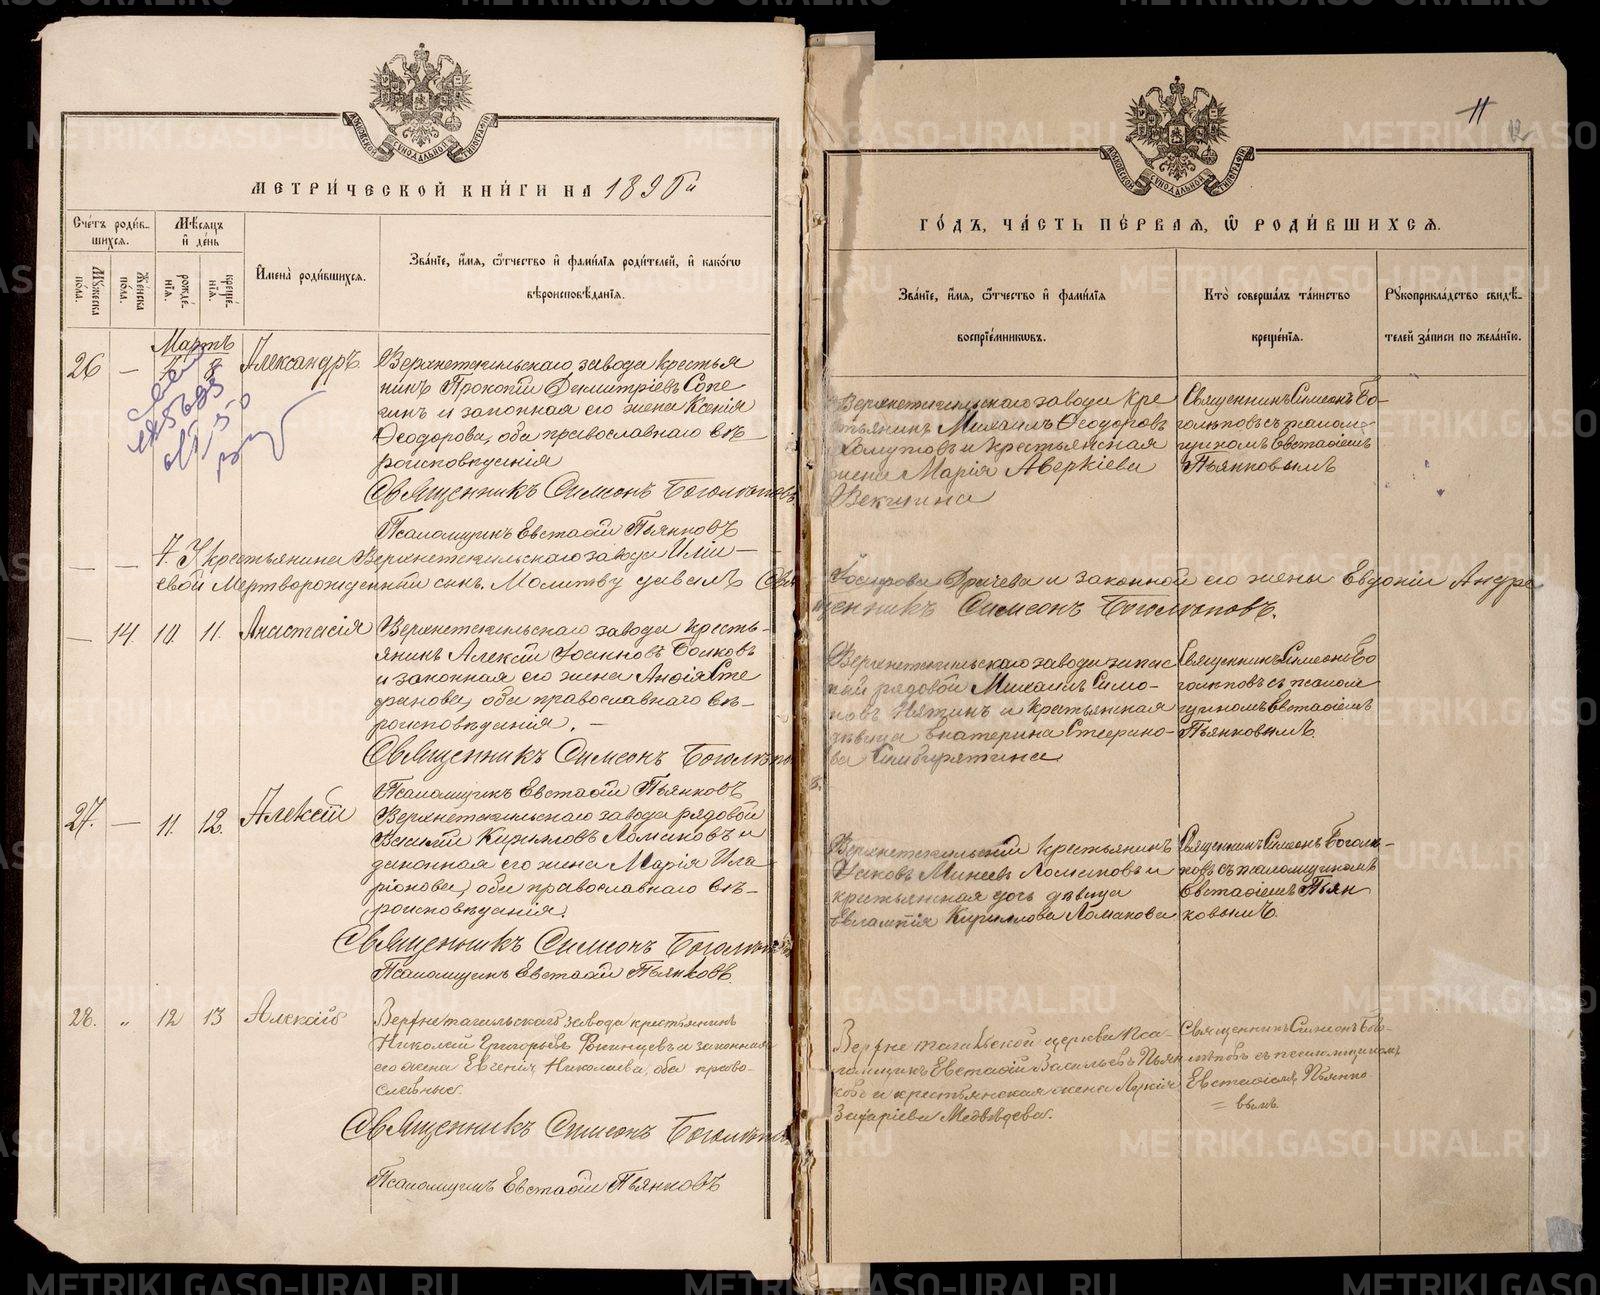 МОСКОВСКОЙ СѴНОДАЛЬНОЙ ТИПОГРАФІИ
МЕТРИ́ЧЕСКОЙ КНИ́ГИ НА 1896й
Сче́тъ роди́в-
шихся.
Мѣсяцъ
и҆ де́нь
Му́жеска
по́ла.
Же́нска
по́ла.
рожде́-
нїя.
креще́-
нїя.
И҆мена̀ роди́вшихся.
Зва́нїе, и҆́мя, ѻ҆́тчество и҆ фами́лїя роди́телей, и҆ како́гѡ
вѣроисповѣ́данїя.
Мартъ
26 — 7 8 Александръ
Верхнетагильскаго завода крестья
нинъ Прокопій Димитріевъ Сопе
гинъ и законная его жена Ксенія
Ѳеодорова, оба православнаго вѣ
роисповѣданія
Священникъ Симеонъ Боголѣповъ
Псаломщикъ Евстаѳій Пьянковъ
— — 7. У крестьянина Верхнетагильскаго завода Иліи —
евой Мертворожденный сынъ. Молитву давалъ Свя
— 14. 10. 11. Анастасія
Верхнетагильскаго завода кресть-
янинъ Алексій Іоанновъ Волковъ
и законная его жена Сте
фанова, оба православнаго вѣ-
роисповѣданія. —
Священникъ Симеонъ Боголѣпо
Псаломщикъ Евстаѳій Пьянковъ
27. — 11. 12. Алексій
Верхнетагильскаго завода рядовой
Василій Кирилловъ Ломаковъ и
законная его жена Марія Ила
ріонова, оба православнаго вѣ-
роисповѣданія.
Священникъ Симеонъ Боголѣповъ
Псаломщикъ Евстаѳій Пьянковъ.
28. „ 12 13 Алексій
Верхнетагильскаго завода крестьянинъ
Николай Григорьевъ и законная
его жена Евгенія Николаева, оба право-
славные.
Священникъ Симеонъ Боголѣповъ
Псаломщикъ Евстаѳій Пьянковъ
11
12
МОСКОВСКОЙ СѴНОДАЛЬНОЙ ТИПОГРАФІИ
ГО́ДЪ, ЧА́СТЬ ПЕ́РВАЯ, Ѡ҆ РОДИ́ВШИХСЯ.
Зва́нїе, и҆́мя, ѻ҆́тчество и҆ фами́лїя
воспрїе́мникѡвъ.
Кто̀ соверша́лъ та́инство
креще́нїя.
Рꙋкоприкла́дство свидѣ́-
телей за́писи по жела́нїю.
Верхнетагильскаго завода кре
стьянинъ Михаилъ Ѳеодоровъ
Хомутовъ и крестьянская
жена Марія Аверкіева
Векшина
Священникъ Симеонъ Бо-
голѣповъ съ псалом
щикомъ Евстаѳіемъ
Пьянковымъ
Драчева и законной его жены Евдокіи Андре
щенникъ Симеонъ Боголѣповъ.
Верхнетагильскаго завода запас
ный рядовой Михаилъ Симо-
новъ и крестьянская
дѣвица Екатерина Стефано-
ва Симбирятина
Священникъ Симеонъ Бо
голѣповъ съ псалом
щикомъ Евстаѳіемъ
Пьянковымъ.
Верхнетагильскій крестьянинъ
Іаковъ Минеевъ Ломаковъ и
крестьянская дочь дѣвица
Евлампія Кириллова Ломакова
Священникъ Симеонъ Боголѣ-
повъ съ псаломщикомъ
Евстаѳіемъ Пьян
ковымъ.
Верхнетагильской церкви пса-
ломщикъ Евстаѳій Васильевъ Пьян
ковъ и крестьянская жена Лукія
Захаріева Медвѣдева.
Священникъ Симеонъ Бого-
лѣповъ съ псаломщикомъ
Евстаѳіемъ Пьянко
= вымъ
METRIKI.GASO-URAL.RU